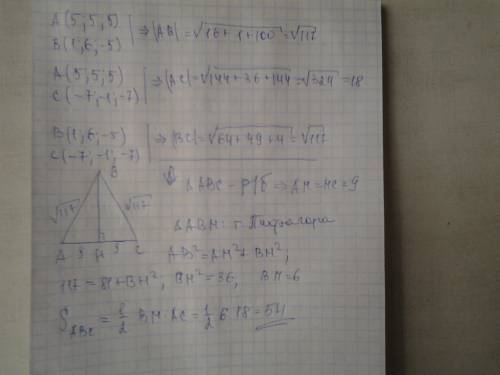 A(5;5;5)
B(1;6;-5) ⇒ |AB| = √16+1+100 = √117
A(5;5;5)
C(-7;-1;-7) ⇒ |AC| = √144+36+144 = √324 = 18
B(1;6;-5)
C(-7;-1;-7) ⇒ |BC| = √64+49+4 = √117
B
√117 √117
A 9 H 9 C
⇓ ΔABC - р/б ⇒ AH=HC=9
ΔABH: т. Пифагора
AB² = AH² + BH²;
117 = 81+BH²; BH² = 36, BH = 6
S ABC = 1/2 BH·AC = 1/2 6·18 = 54